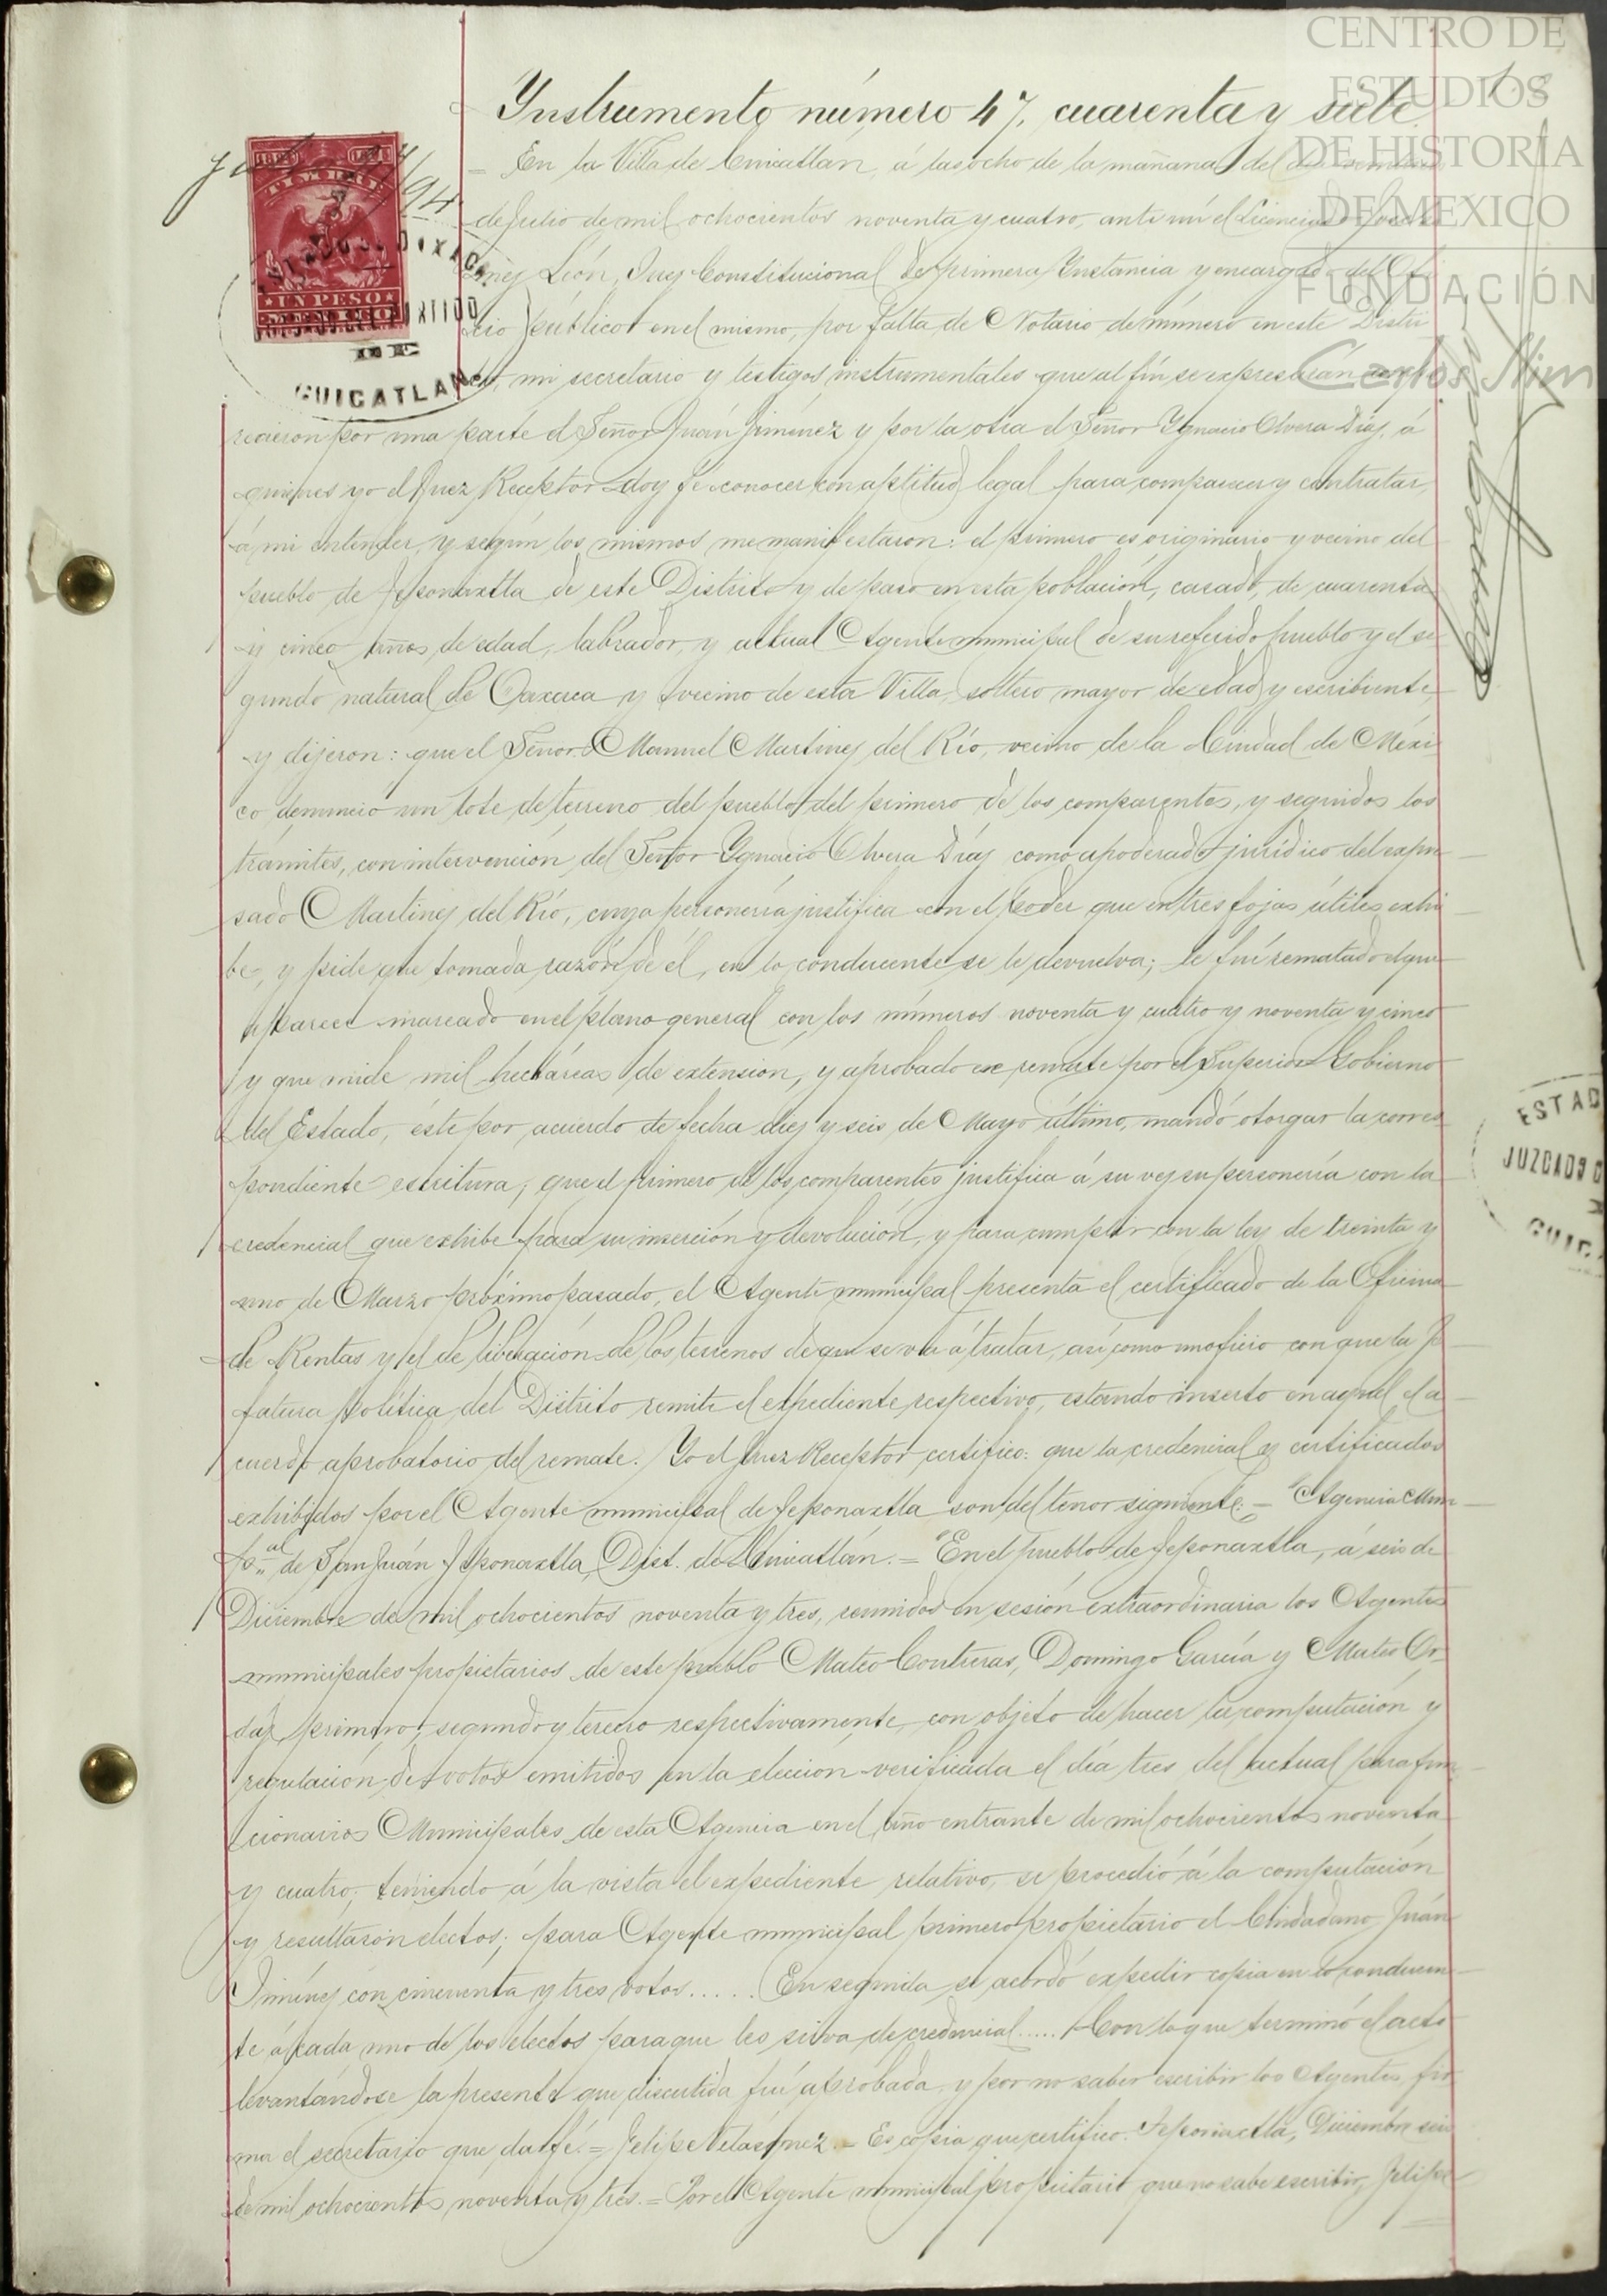 CENTRO DE
ESTUDIOS
DE HISTORIA
DE MEXICO
FUNDACIÓN
Carlos Slim
Ynstrumento número 47, cuarenta y siete
Julio /94
TIMBRE
UN PESO
CUICATLAN
= En la Villa de Cuicatlán, á las ocho de la mañana del dia
de Julio de mil ochocientos noventa y cuatro, ante mí el Licenciado
León, Juez Constitucional de primera Ynstancia y encargado del Ofi
cio público en el mismo, por falta de Notario de número en este Distri
to, mi secretario y testigos instrumentales que al fín se expresarán
recieron por una parte el Señor Juán Jiménez y por la otra el Señor Ygnacio Olvera Díaz, á
quienes yo el Juez Receptor doy fé conocer con aptitud legal para comparecer y contratar,
á mi entender, y según los mismos me manifestaron: el primero es originario y vecino del
pueblo de Teponaxtla de este Distrito y de paso en esta población, casado, de cuarenta
y cinco años de edad, labrador, y actual Agente municipal de su referido pueblo y el se
gundo natural de Oaxaca y vecino de esta Villa, soltero mayor de edad y escribiente,
y dijeron: que el Señor Manuel Martinez del Río, vecino de la Ciudad de Méxi
co denunció un lote de terreno del pueblo del primero de los comparentes, y seguidos los
tramites, con intervención del Señor Ygnacio Olvera Díaz como apoderado jurídico del expre
sado Martinez del Río, cuya personería justifica con el poder que en tres fojas útiles exhi
be, y pide que tomada razón de él, en lo conducente se le devuelva; le fué rematado el que
aparece marcado en el plano general con los números noventa y cuatro y noventa y cinco
y que mide mil hectáreas de extensión, y aprobado ese remate por el Superior Gobierno
del Estado, éste por acuerdo de fecha diez y seis de Mayo último, mandó otorgar la corres
pondiente escritura; que el primero de los comparentes justifica á su vez su personería con la
credencial que exhibe para su inserción y devolución, y para cumplir con la ley de treinta y
uno de Marzo próximo pasado, el Agente municipal presenta el certificado de la Oficina
de Rentas y el de liberación de los terrenos de que se va á tratar, así como un oficio con que la Je
fatura Política del Distrito remite el expediente respectivo, estando inserto en aquel el a
cuerdo aprobatorio del remate. Yo el Juez Receptor certifico: que la credencial y certificados
exhibidos por el Agente municipal de Teponaxtla son del tenor siguiente: = "Agencia Mun
de San Juán Teponaxtla, Dist. de Cuicatlán. = "En el pueblo de Teponaxtla, á seis de
Diciembre de mil ochocientos noventa y tres, reunidos en sesión extraordinaria los Agentes
municipales propietarios de este pueblo Mateo Contreras, Domingo García y Mateo Or
daz, primero, segundo y tercero respectivamente, con objeto de hacer la computación y
regulación de votos emitidos en la elección verificada el día tres del actual para fun
cionarios Municipales de esta Agencia en el año entrante de mil ochocientos noventa
y cuatro; teniendo á la vista el expediente relativo, se procedió á la computación
y resultaron electos; para Agente municipal primero propietario el Ciudadano Juán
Jiménez con cincuenta y tres votos..... En seguida se acordó expedir copia en lo conducen
te á cada uno de los electos para que les sirva de credencial..... Con lo que terminó el acto
levantándose la presente que discutida fué aprobada, y por no saber escribir los Agentes, fir
ma el secretario que da fé. = Felipe Velásquez = Es copia que certifico. Teponaxtla, Diciembre seis
de mil ochocientos noventa y tres. = Por el Agente municipal propietario que no sabe escribir, Felipe
ESTAD
JUZGADO
CUIC